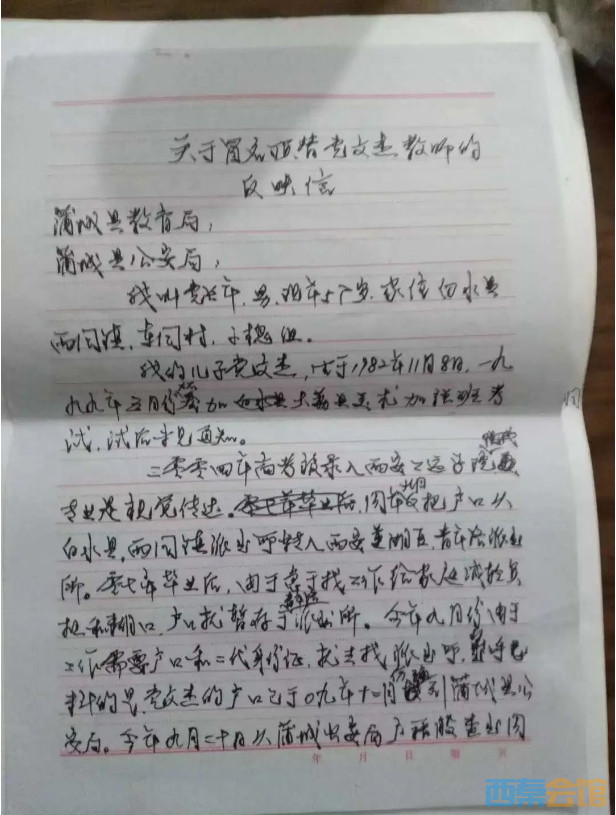 关于冒名顶替党文杰教师的
反映信
蒲城县教育局,
蒲城县公安局,
我叫党 年,男,现年57岁,家住白水县
西固镇,东固村,
我的儿子党文杰,生于1982年11月8日,一九
九九年三月份参加白水县 县美术加强班考
试,试后未见通知。
二零零四年高考被录入西安工运学院
专业是视觉传达。零七年毕业后,同年 把户口从
白水县,西固镇派出所转入西安莲湖区,青年路派出
所。零七年毕业后,由于急于找工作给家庭减轻负
担和糊口,户口就暂存于派出所。今年九月份由于
工作需要户口和二代身份证,就去找派出所,
料的是党文杰的户口已于09年十二月份 到蒲城县公
安局。今年九月二十日从蒲城公安局户籍股查出同
年 月 日 第 页
西秦会馆